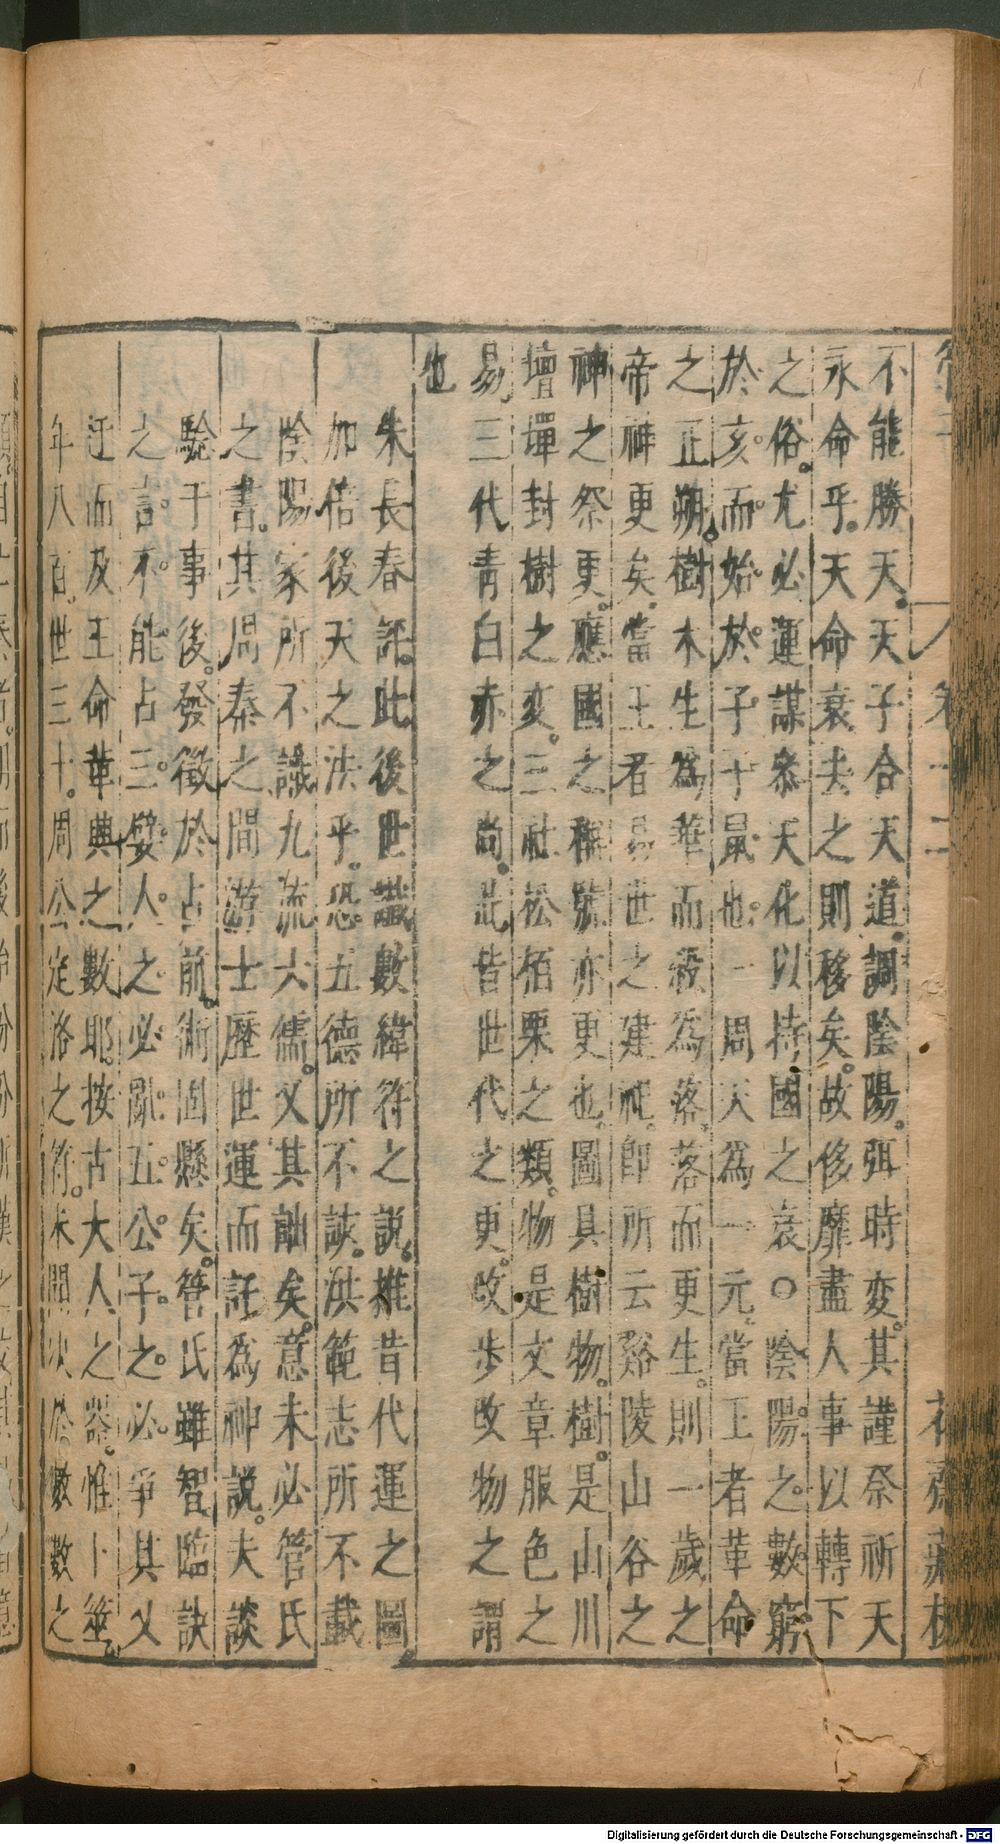 不能勝天。天子合天道。調陰陽。弭時変。其謹祭祈天
永命乎。天命衰夫之則移矣。故侈靡盡人事以轉下
之俗。尤必運謀參天化以持國之衰〇陰陽之數窮
於亥。而始於子子鼠也。一周天為一元。當王者革命
之正朔。樹木生為華而殺為落。落而更生。則一歲之
帝神更矣。當王者易世之建祀。即所云谿陵山谷之
神之祭更。應國之稱號亦更也。圖具樹物。樹是山川
壇墠封樹之変。三社松栢栗之類。物是文章服色之
易三代青白赤之尚。此皆世代之更。改步改物之謂
也
朱長春記。此後世讖數緯符之說。推昔代運之圖
加倍後天之法乎。恐五德所不談。洪範志所不載
陰陽家所不議九流六儒。又其訕矣。意未必管氏
之書。其周秦之間游士歷世運而託為神說。夫談
驗于事後。發徵於占前。術固懸矣。管氏雖智臨訣
之言。不能占三嬖人之必亂。五公子之必爭其又
迂而及王命革興之數耶。按古大人之器。惟卜筮。
年八百。世三十。周公定洛之符。未聞次數數之
卷十二
花齋藏板
Digitalisierung gefördert durch die Deutsche Forschungsgemeinschaft - DFG